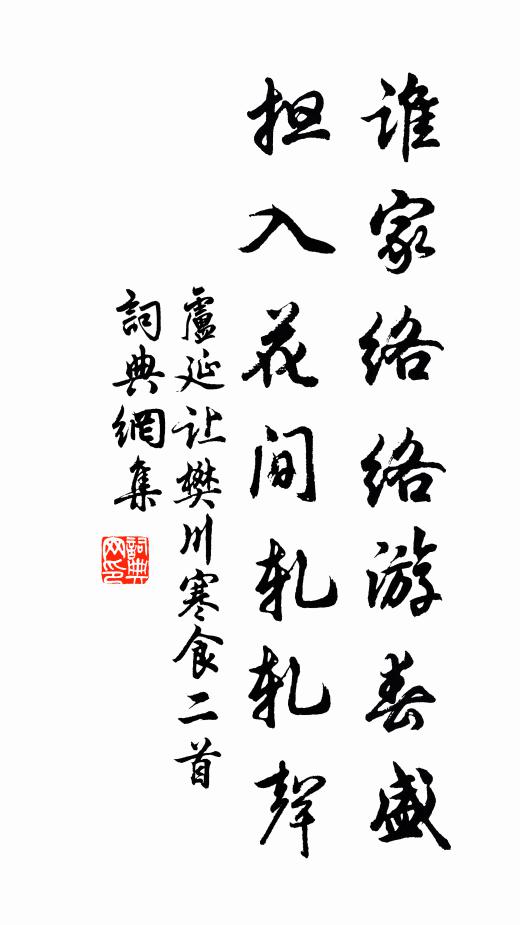 谁家络络游春盛
担入花间轧轧声
盧延让樊川寒食二首
詞典網集
詞典网印